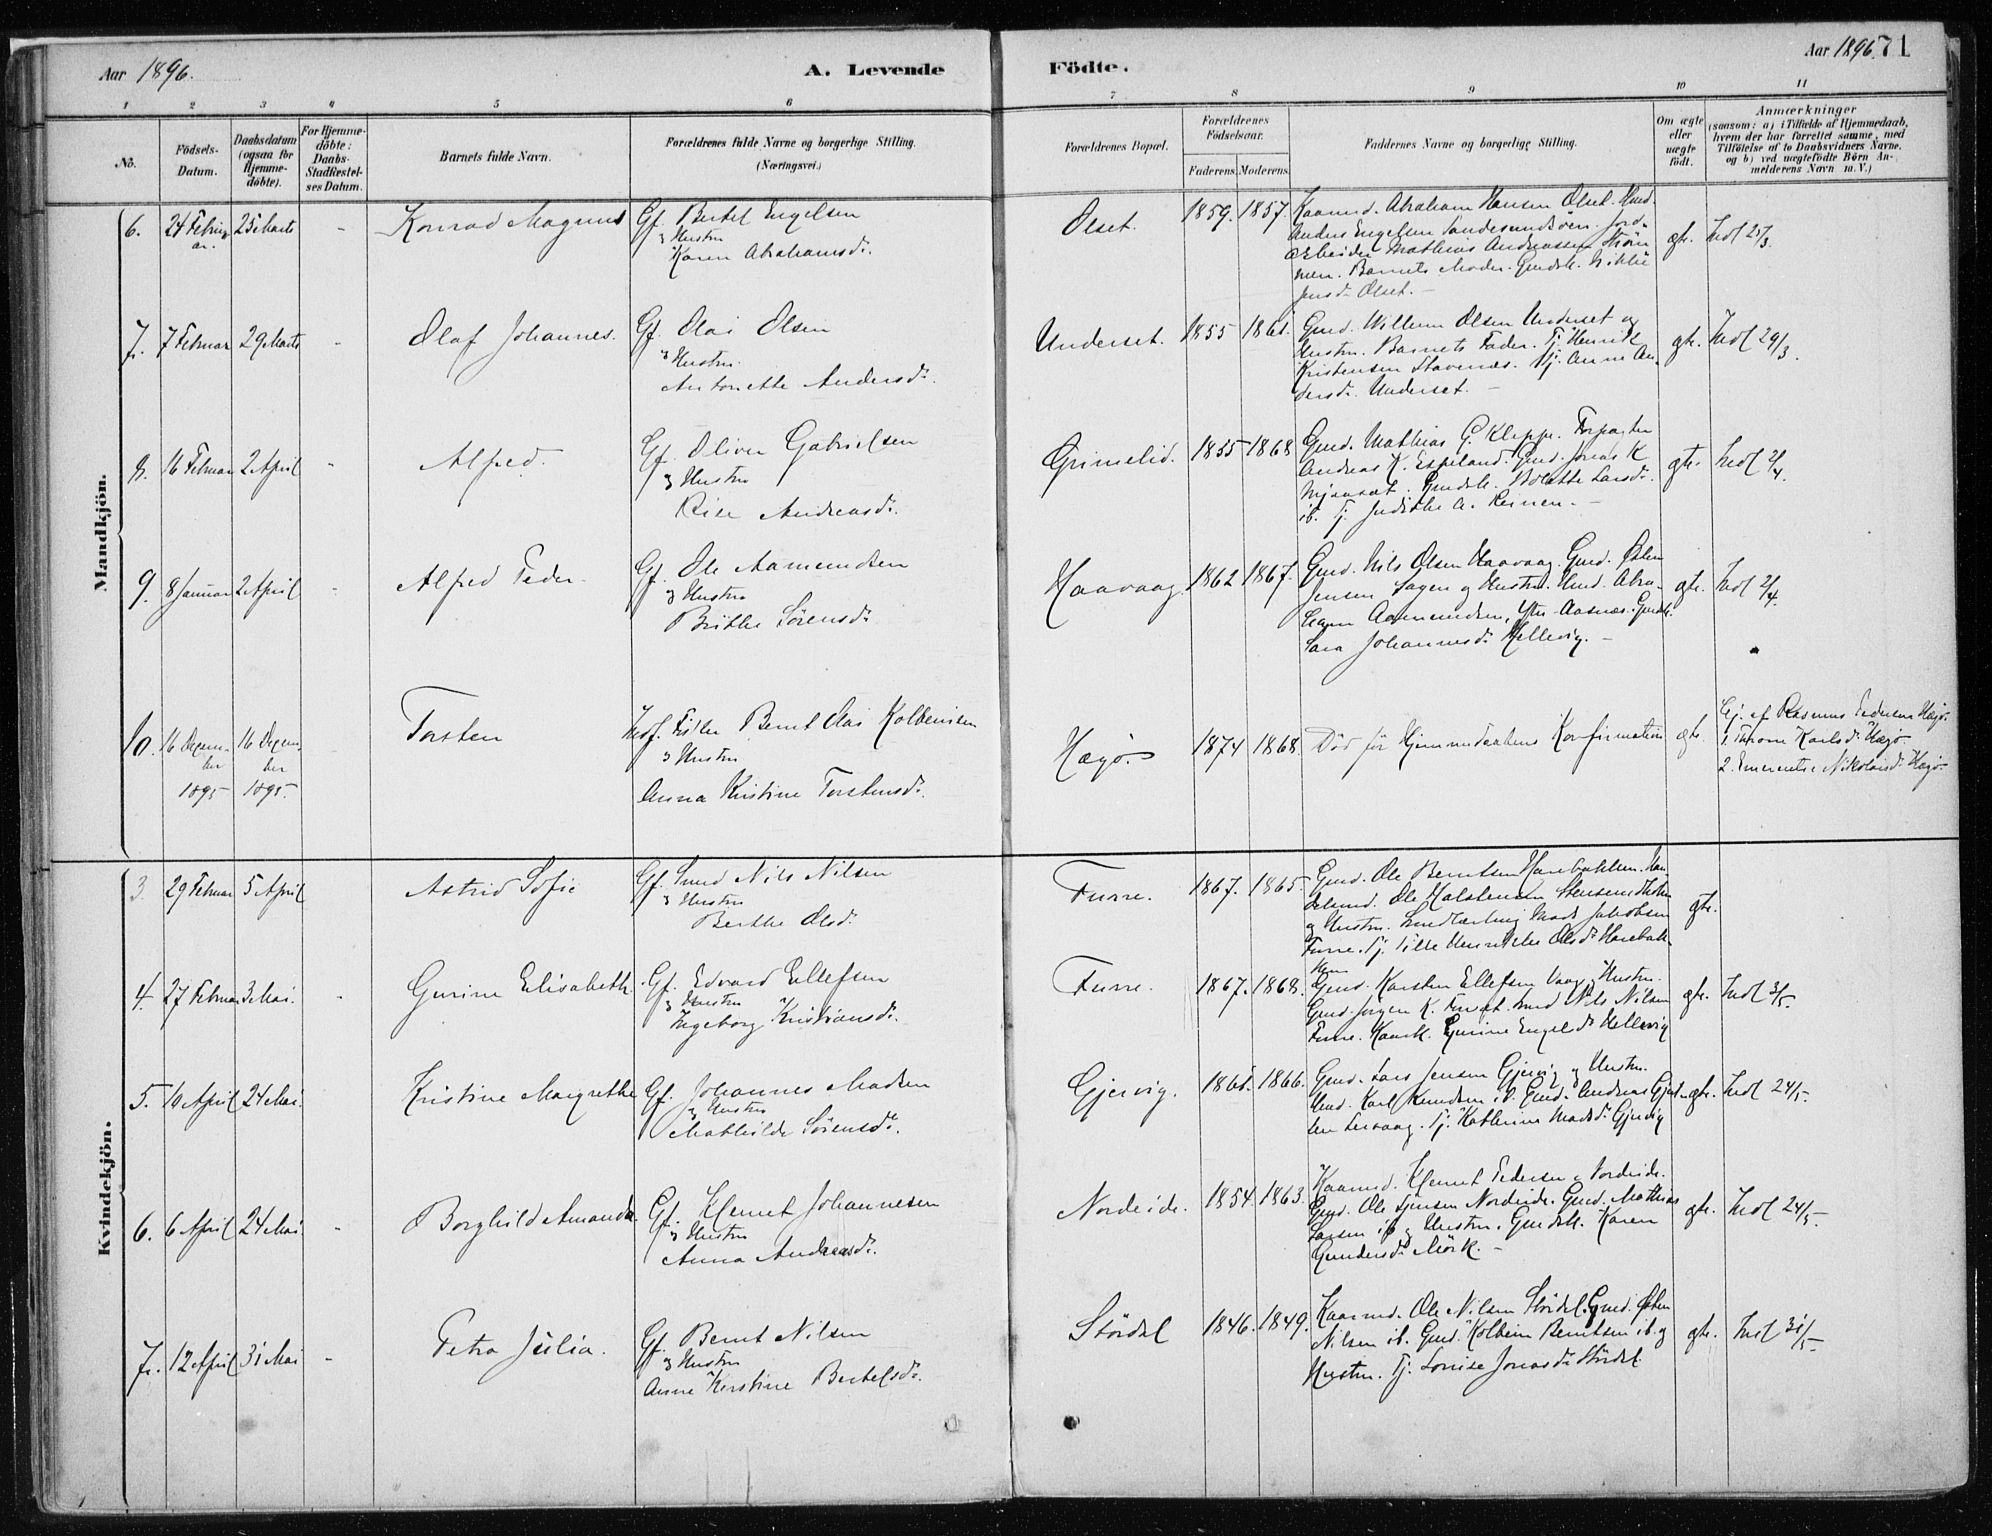 Aar 1896.
A. Levende
Födte.
Aar 1896. 71
1 2 3 4 5 6 7 8 9 10 11
No.
Födsels-
Datum.
Daabsdatum
(ogsaa for
Hjemme-
döbte).
For Hjemme-
döbte:
Daabs-
Stadfæstel-
ses Datum.
Barnets fulde Navn.
Forældrenes fulde Navne og borgerlige Stilling.
(Næringsvei.)
Forældrenes Bopæl.
Forældrenes
Födselsaar.
Faderens. Moderens.
Faddernes Navne og borgerlige Stilling.
Om ægte
eller
uægte
födt.
Anmærkninger
(saasom: a) i Tilfælde af Hjemmedaab,
hvem der har forrettet samme, med
Tilföielse af to Daabsvidners Navne,
og b) ved uægtefödte Börn An-
melderens Navn m. V.)
Mandkjön.
6. 24 Februar 25 Marts - Konrad Magnus
Gf. Bertel Engelsen
og Hustru
Karen Abrahamsd.
Olset. 1859. 1857.
Kaarmd. Abraham Hansen Olset. Husd.
Anders Engelsen Sandesundsöen. Jord-
arbeider Mathias Andreassen Ström
men. Barnets Moder. Gmdsk.
Jensd. Olset. -
gte. Indl 25/3
7. 7 Februar 29 Marts - Olaf Johannes.
Gf. Olai Olsen
og Hustru
Antonette Andersd.
Underset. 1855 1861.
Gmd. Willum Olsen Underset og
Hustru. Barnets Fader. Tj. Henrik
Kristensen Stavenæs. Pj. Anne An-
dersd. Underset. -
gte. Indl 29/3.
8. 16 Februar 2 April - Alfred.
Gf. Oliver Gabrielsen
og Hustru
Andreasd.
Grimelid. 1855 1868
Gmd. Mathias G. Kleppe. Forpagter
Andreas K. Espeland. Gmd. Jonas K
Gmdsk. Bolette Larsd.
ib. Tj. Judithe A. Reinen. -
gte. Indl 2/4.
9. 8 Januar 2 April - Alfred Peder
Gf. Ole Aamundsen
og Hustru
Brithe Sörensd.
Haavaag 1862 1867.
Gmd. Nils Olsen Haavaag. Gmd. Peder
Jensen Sagen og Hustru. Husd. Abra-
ham Aamundsen, Ytre Aasnæs. Gmdsk.
Sara Johannesd. Hellevig. -
gte. Indl 2/4.
10. 16 Decem- 16 Decem-
ber ber
1895 1895.
Torsten
Indf. Fisker Bernt Olai Kolbeinsen
og Hustru
Anna Kristine Torstensd.
Hægö. 1874 1868.
Död för Hjemmedaabens Konfirmation
gte.
Hj. af Rasmus Pedersen Hægö.
1. Karlsd. Hægö
2. Emerentse Nikolaisd. Hægö.
Kvindekjön.
3. 29 Februar 5 April Astrid Sofie
Gf. Smed Nils Nilsen
og Hustru
Berthe Olsd.
Furre. 1867. 1865.
Gmd. Ole Berntsen Harebakken. Han-
delsmd. Ole Halstensen Stensundholm
og Hustru. Mads Jakobsen
Furre. Tj. Henrikke Olsd. Harebak-
ken
gte.
4. 27 Februar 3 Mai. - Gurine Elisabeth.
Gf. Edvard Ellefsen
og Hustru
Ingeborg Kristiansd.
Furre. 1867. 1868.
Gmd. Karsten Ellefsen Vaag og Hustru.
Gmd. Jörgen K. Furre. Smed Nils Nilsen
Furre. Kaarsk. Gurine Engelsd. Hellevig
gte. Indl 3/5.
5. 10 April 24 Mai. Kristine Margrethe
Gf. Johannes Madsen
og Hustru
Mathilde Sörensd.
Gjervig. 1861. 1866.
Gmd. Lars Jensen Gjervig og Hustru.
Husd. Karl Knudsen ib. Gmd. Andreas
Tj. Kathrine Madsd. Gjervig
gte. Indl 24/5.
6. 6 April 24 Mai. - Borghild Amanda.
Gf. Klemet Johannesen
og Hustru
Anna Andreasd.
Nordeide. 1854. 1863.
Kaarmd. Klemet Pedersen Nordeide.
Gmd. Ole Jensen Nordeide. Gmd. Mathias
Larsen ib. og Hustru. Gmdsk. Karen
Gundersd. Mörk. -
gte. Indl 24/5.
7. 12 April 31 Mai - Petra Julia.
Gf. Bernt Nilsen
og Hustru
Anne Kirstine Bertelsd.
Stördal 1846. 1849.
Kaarmd. Ole Nilsen Stördal. Gmd. Peder
Nilsen ib. Gmd. Kolbein Berntsen ib. og
Hustru. Tj. Lovise Jonasd. Stördal.
gte. Indl 31/5.